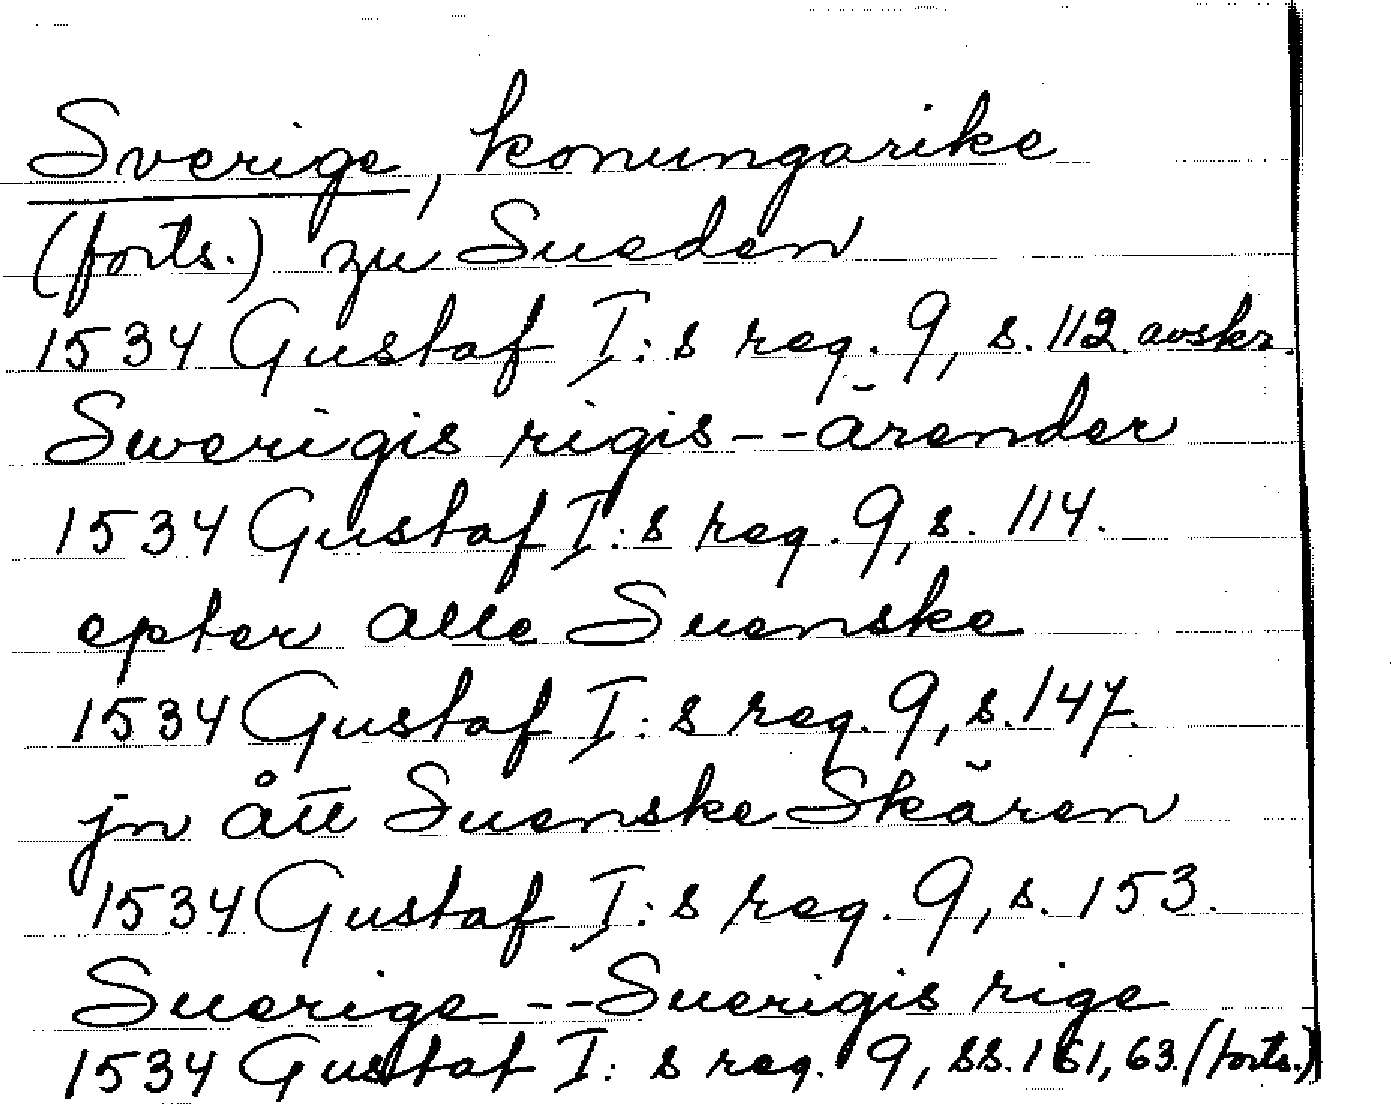 Sverige, konungarike
(forts.) zu Sueden
1534 Gustaf I:s reg. 9, s. 112. avskr.
Swerigis rigis--ärender
1534 Gustaf I:s reg. 9, s. 114.
epter alle Suenske
1534 Gustaf I:s reg. 9, s. 147.
jn ått Suenske Skären
1534 Gustaf I:s reg. 9, s. 153.
Suerige--Suerigis rige
1534 Gustaf I:s reg. 9, ss. 161, 63. (forts.)